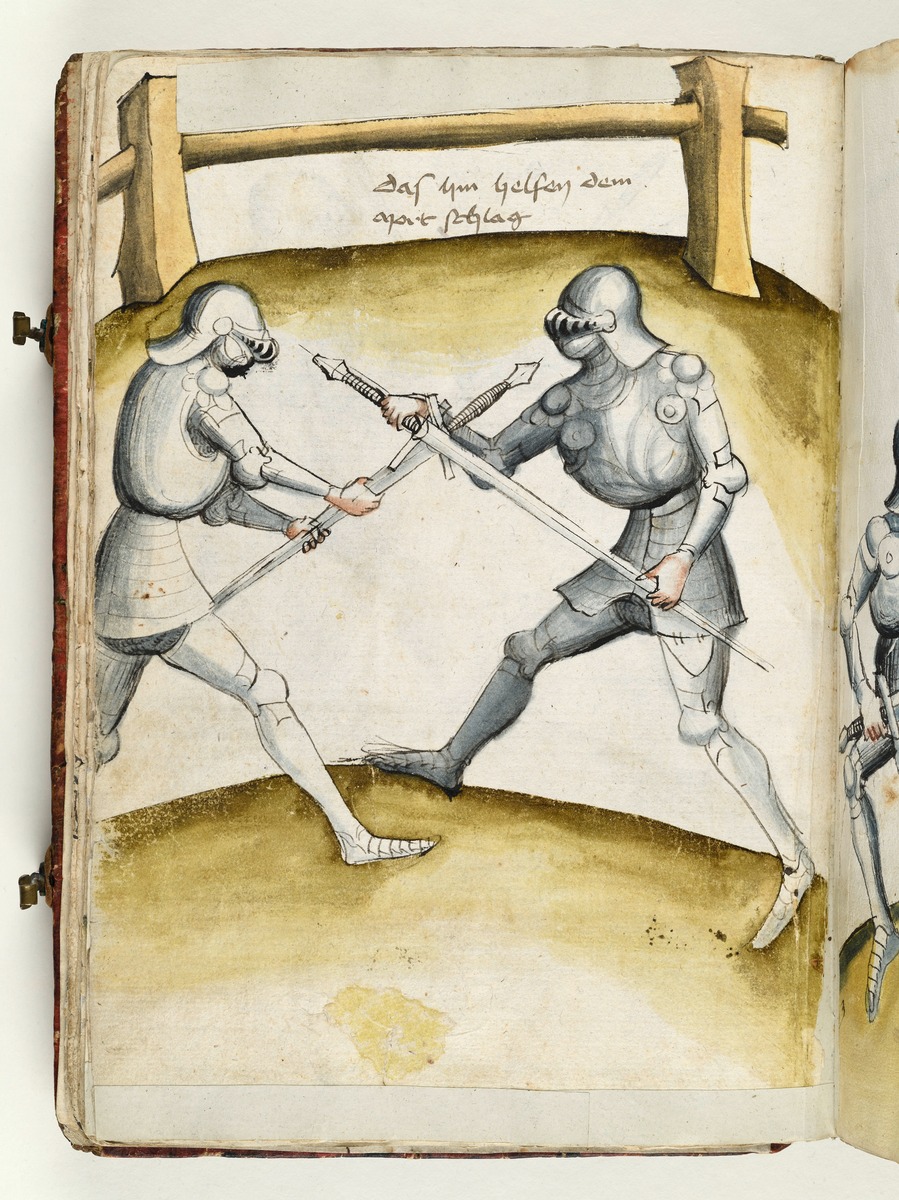 das hin helfen dem
mort schlag